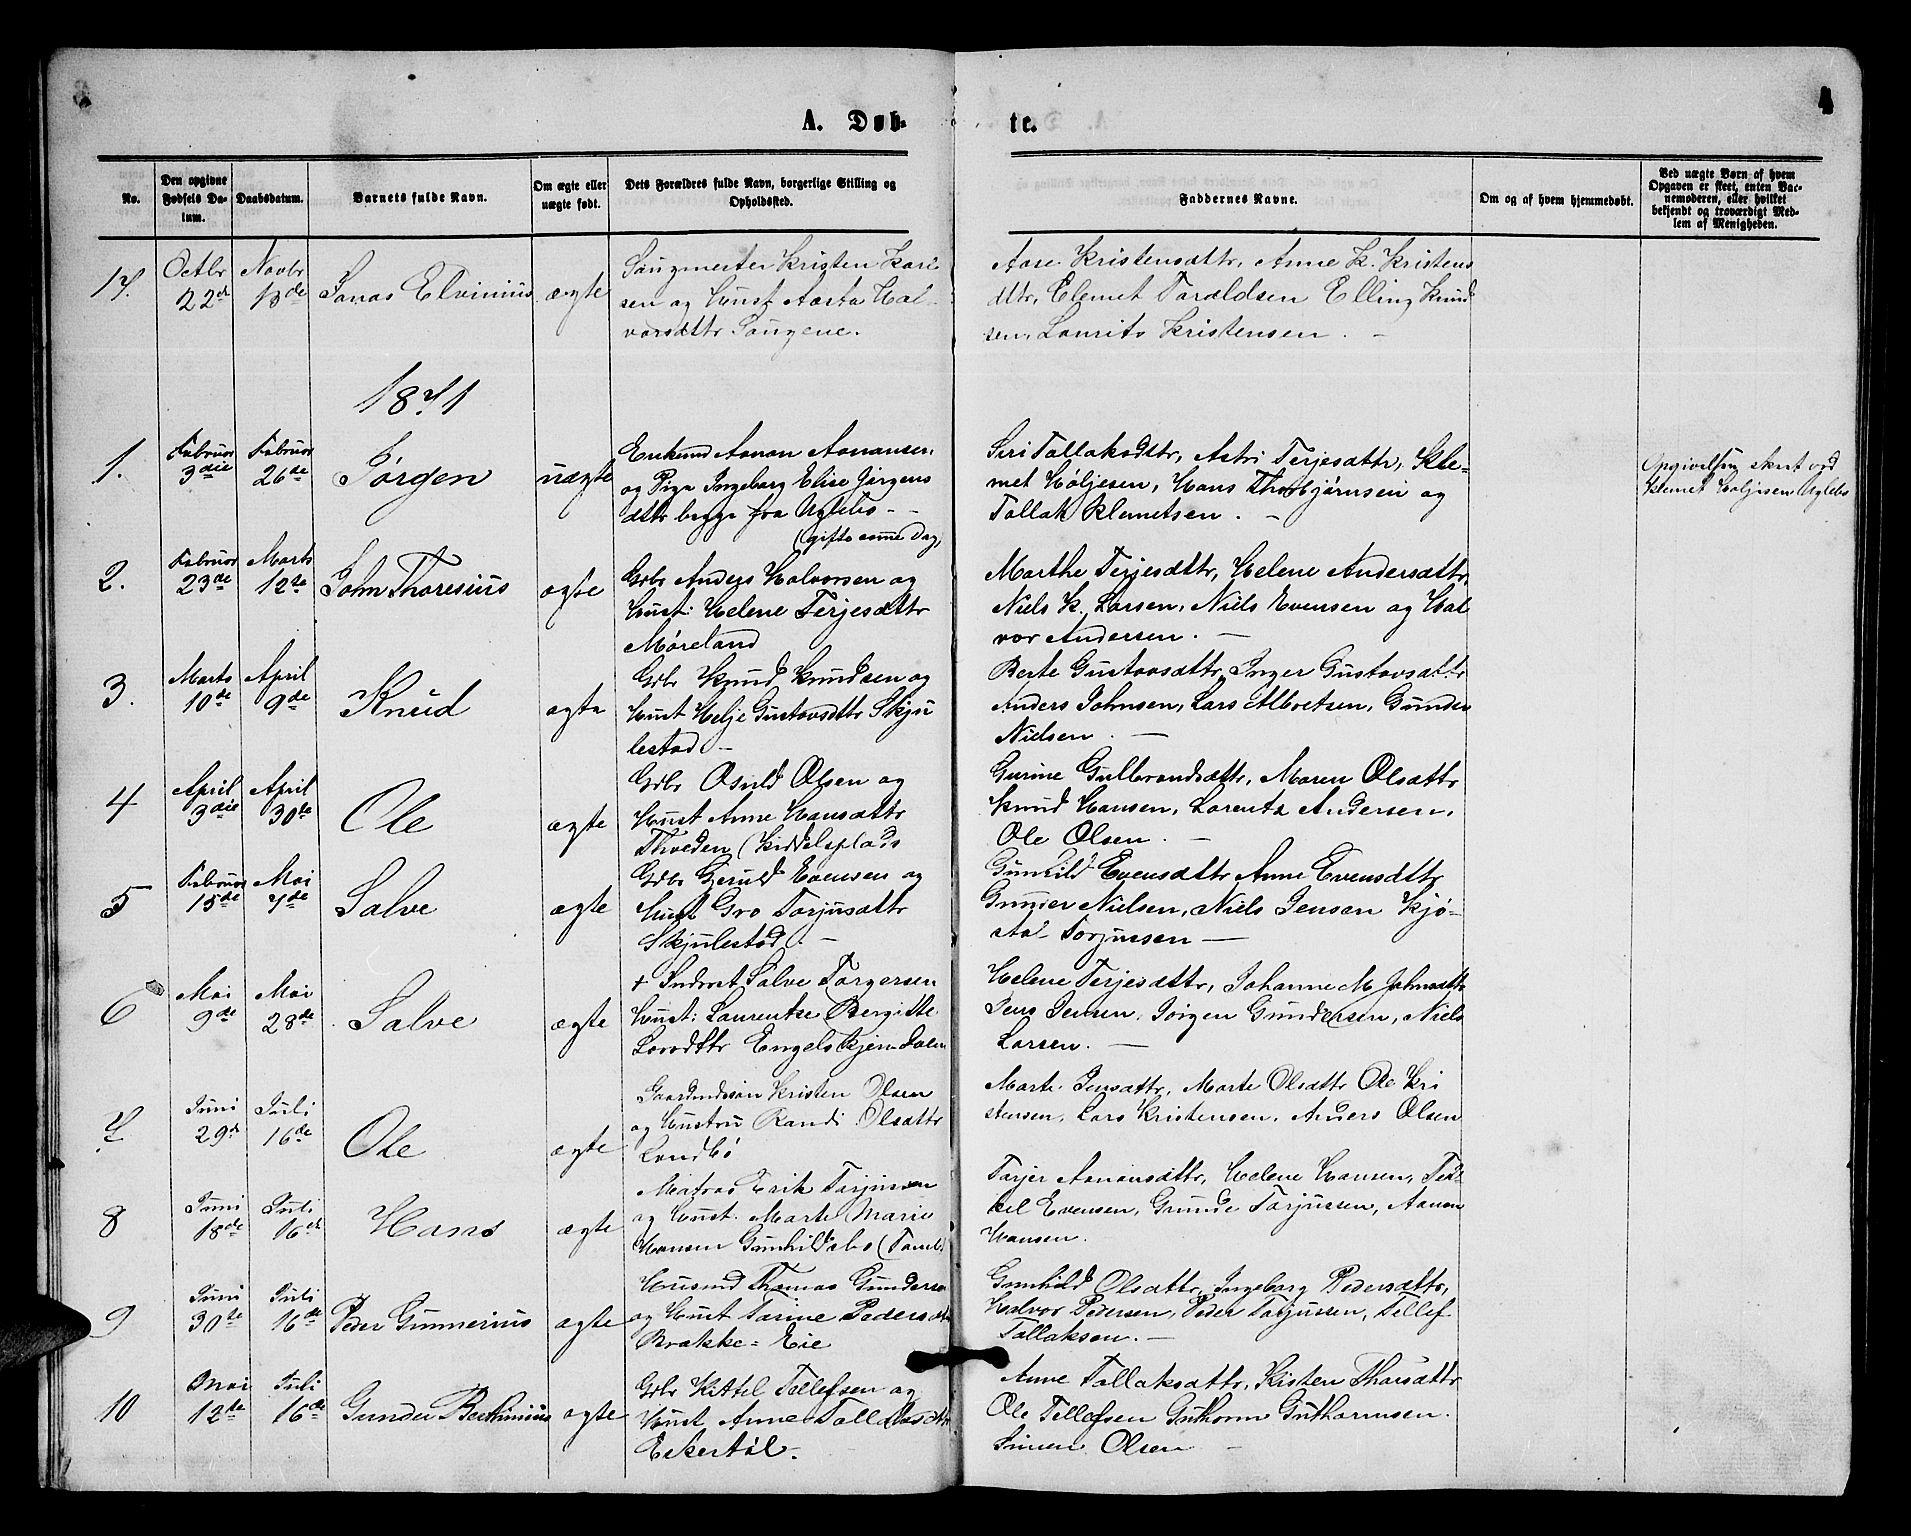 A. Døb-
te.
4
No.
Den opgivne Fødsels Datum.
Daabsdatum.
Barnets fulde Navn.
Om ægte eller uægte født.
Dets Forældres fulde Navn, borgerlige Stilling og Opholdssted.
Faddernes Navne.
Om og af hvem hjemmedøbt.
Ved uægte Børn af hvem Opgaven er skeet, enten Barnemoderen, eller hvilket bekjendt og troværdigt Medlem af Menigheden.
17.
Octbr 22de
Novbr 13de
Jonas Elvinius
ægte
Saugmester Kristen Kari-
sen og Hust Aasta Hal-
vorsdttr Saugene.
Aase Kristensdttr, Anne K. Kristens
dttr, Elemet Taraldsen Elling Knud
sen, Laurits Kristensen. -
1871
1.
Februar 3die
Februar 26de
Jørgen
uægte
Enkemd Aanon Aanonsen
og Pige Ingeborg Elise Jørgens
dttr begge fra Uglebo - -
(gifte samme Dag)
Siri Tallaksdttr, Astri Terjesdttr, Kle-
met Høljesen, Hans Thorbjørnsen og
Tallak Klemetsen. -
Opgivelsen skeet ved
Klemet Høljesen Uglebo
2.
Februar 23de
Marts 12te
John Thoresius
ægte
Gdbr Anders Halvorsen og
Hust: Helene Terjesdttr
Møreland
Marthe Terjesdttr, Helene Andersdttr,
Niels K. Larsen, Niels Evensen og Hal
vor Andersen. -
3.
Marts 10de
April 9de
Knud
ægte
Gdbr Knud Knudsen og
Hust Helje Gustavsdttr Skju
lestad -
Berte Gustavsdttr, Inger Gustavsdttr
Anders Johnsen, Lars Albretsen, Gunder
Nielsen. -
4
April 3die
April 30te
Ole
ægte
Gdbr Osuld Olsen og
Hust Anne Hansdttr
Thveden (Kiddelsplads
Gurine Gulbrandsdttr, Maren Olsdttr
Knud Hansen, Lorents Andersen,
Ole Olsen. -
5
Februar 15de
Mai 7de
Salve
ægte
Gdbr Gjeruld Evensen og
Hust Gro Torjusdttr
Skjulestad. -
Gunhild Evensdttr Anne Evensdttr
Gunder Nielsen, Niels Jensen Kjø-
stol Torjussen -
6
Mai 9de
Mai 28de
Salve
ægte
+ Inderst Salve Torgersen
Hust: Laurentse Bergitte
Larsdttr Engelskjøndalen
Helene Terjesdttr, Johanne M Johnsdttr
Jens Jensen, Jørgen Gundersen, Niels
Larsen. -
7.
Juni 29de
Juli 16de
Ole
ægte
Gaardmdssøn Kristen Olsen
og Hustru Randi Olsdttr
Landbø
Marte Jensdttr, Marte Olsdttr Ole Kri
stensen, Lars Kristensen, Anders Olsen
8
Juni 18de
Juli 16de
Hans
ægte
Matros Erik Torjussen
og Hust. Marte Marie
Hansen Gunhildsbo
Torjer Aanonsdttr, Helene Hansen, Ted-
kel Evensen, Grunde Torjussen, Aanon
Hansen.
9
Juni 30te
Juli 16de
Peder Gunnerius
ægte
Husmd Thomas Gundersen
og Hust Tarine Pedersdttr
Brække-Eie
Gunhild Olsdttr, Ingeborg Pedersdttr,
Halvor Pedersen, Peder Torjussen, Tellef
Tallaksen. -
10
Mai 12te
Juli 16de
Gunder Berthinius
ægte
Gdbr Kittel Tellefsen og
Hust Anne Tallaksdttr
Eskertøl -
Anne Tallaksdttr, Kisten Thorsdttr
Ole Tellefsen Guthorm Guthormsen.
Simen Olsen -